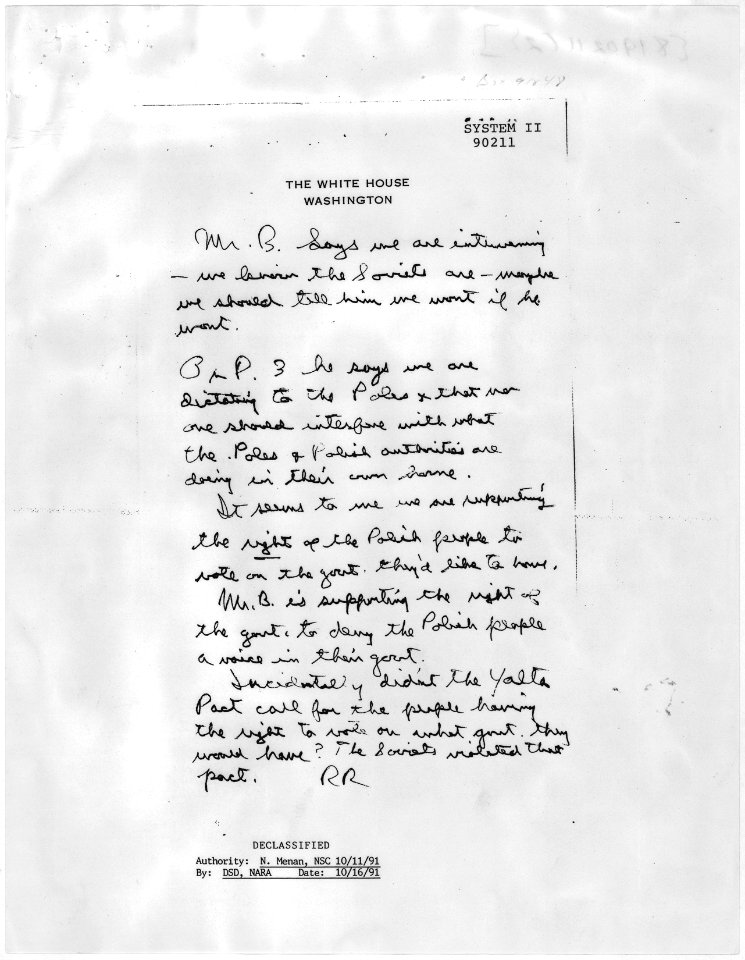 SYSTEM II
90211
THE WHITE HOUSE
WASHINGTON
Mr. B. Says we are intervening
– we know the Soviets are – maybe
we should tell him we wont if he
wont.
On P. 3 he says we are
dictating to the Poles & that no
one should interfere with what
the Poles & Polish authorities are
doing in their own home.
It seems to me we are supporting
the right of the Polish people to
vote on the govt. they'd like to have.
Mr. B. is supporting the right of
the govt. to deny the Polish people
a voice in their govt.
Incidentally didn't the Yalta
Pact call for the people having
the right to vote on what govt. they
would have? The Soviets violated that
pact. RR
DECLASSIFIED
Authority: N. Menan, NSC 10/11/91
By: DSD, NARA Date: 10/16/91